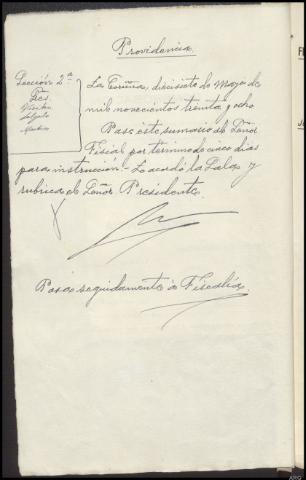 Providencia
Sección 2ª
Sres.
Salgado
La Coruña, diecisiete de Mayo de
mil novecientos treinta y ocho
Pase este sumario al Señor
Fiscal por termino de cinco dias
para instrucción. Lo acordó la Sala y
rubrica el Señor Presidente.
Pasa seguidamente a Fiscalía.